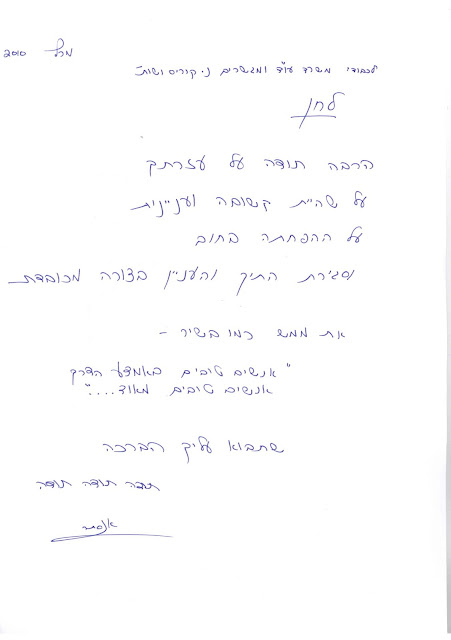 מרץ 2010
לכבוד: משרד עו"ד ומגשרים נ. קוריס ושות'
לחן
הרבה תודה על עזרתך
על שהיית קשובה ועניינית
על ההפחתה בחוב
וסגירת התיק והעניין בצורה מכובדת
את ממש כמו בשיר -
"אנשים טובים באמצע הדרך
אנשים טובים מאוד...."
שתבוא עליך הברכה
תודה תודה תודה